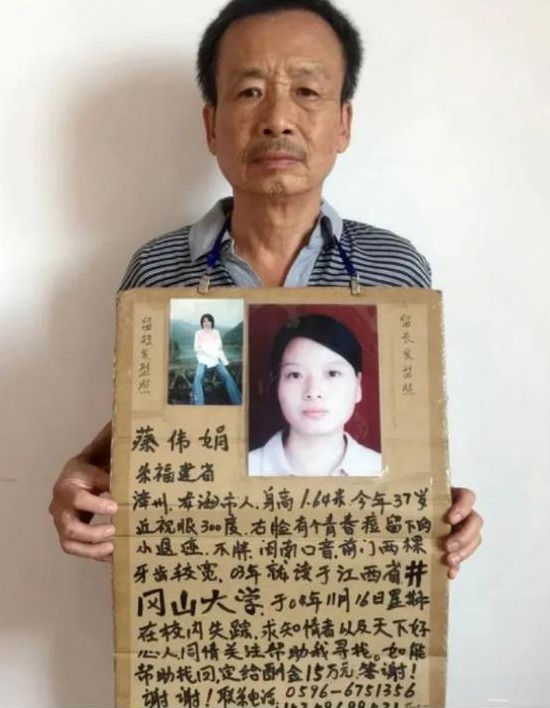 留短发型照
留长发型照
蔡伟娟
福建省
漳州.龙海市人.身高1.64米.今年37岁
近视眼300度.右脸有个青春痘留下的
小退痣.不胖.闽南口音.前门两棵
牙齿较宽.03年就读于江西省井
冈山大学.于04年11月16日星期
在校内失踪.求知情者以及天下好
心人同情关注帮助我寻找。如能
帮助找回.定给酬金15万元.答谢!
谢谢!联系电话:0596-6751356